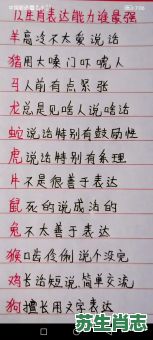 12生肖表达能力谁最强
羊高冷不太爱说话
猪用大嗓门吓唬人
马人前有点紧张
龙总是见啥人说啥话
蛇说话特别有鼓励性
虎说话特别有条理
牛不是很善于表达
鼠死的说成活的
兔不太善于表达
猴口齿伶俐说个没完
鸡长话短说,简单交流
狗擅长用文字表达
苏生肖志